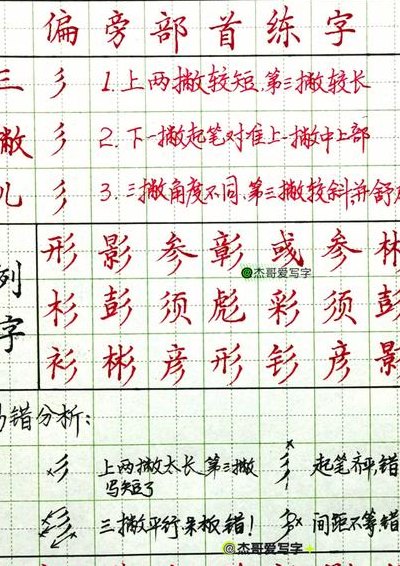 偏旁部首练字
三撇儿
彡 1.上两撇较短,第三撇较长
彡 2.下一撇起笔对准上一撇中上部
彡 3.三撇角度不同,第三撇较斜,并舒
列字
形影参彰彧参彬
@杰哥爱写字
杉彭须彪彩须彭
衫彬彦形钐彦影
错分析:
彡 上两撇太长,第三撇写短了
彡 起笔齐平,错
彡 三撇平行,呆板,错!
彡 间距不等,错
@杰哥爱写字